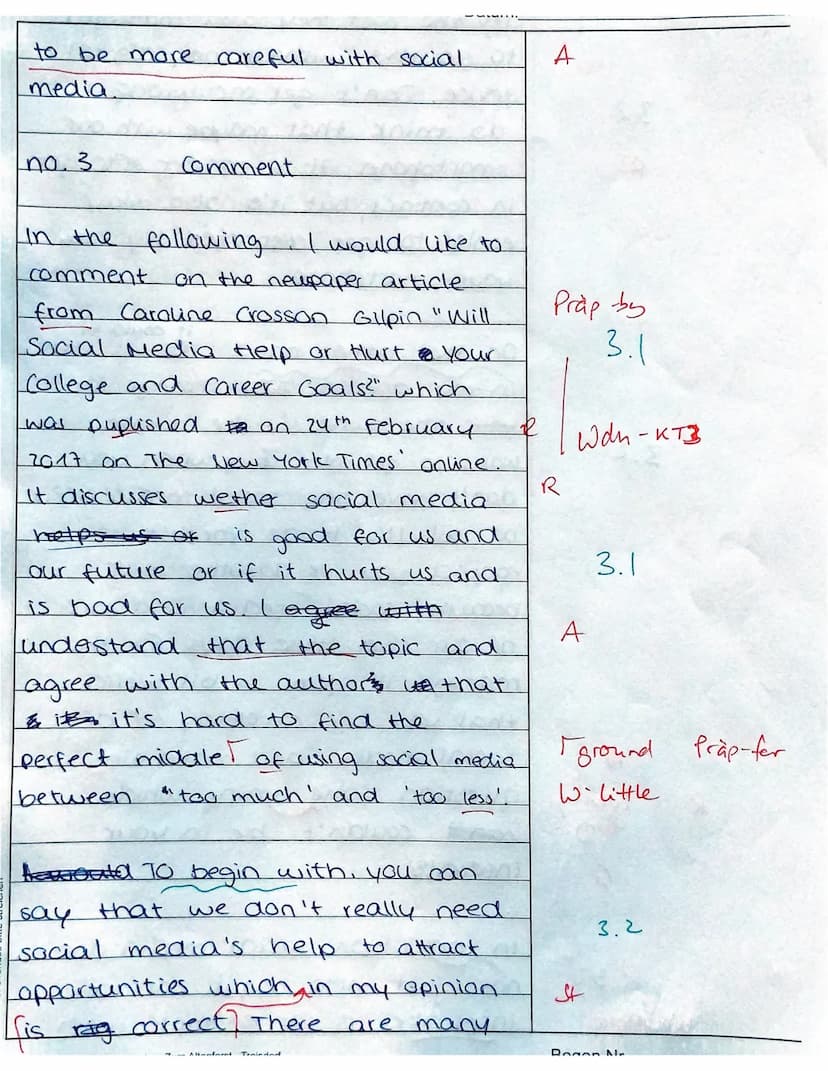 to be more careful with social A
media.
no. 3 Comment
In the following I would like to
comment on the newspaper article
from Caroline Crosson Gilpin "Will Präp by
Social Media Help or Hurt Your 3.1
College and Career Goals?" which
was puplished on 24th February R Wdh-KT3
2017 on The New York Times' online.
It discusses wether social media R
helps us or is good for us and
our future or if it hurts us and 3.1
is bad for us. I agree with
undestand that the topic and A
agree with the author's that
it's hard to find the
perfect middle of using social media ground Präp-for
between "too much' and 'too less'. W: little
To begin with, you can
say that we don't really need
social media's help to attract 3.2
opportunities which in my opinion St
is rig correct. There are many